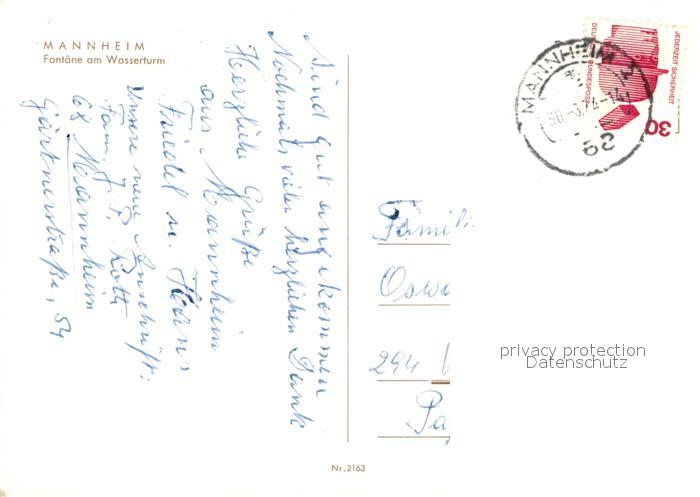 MANNHEIM
Fontäne am Wasserturm
Sind gut angekommen
Nochmals vielen herzlichen Dank
Herzliche Grüße
aus Mannheim
Friedel u. Hans
Unsere neue Anschrift:
Fam. J. P. Roth
68 Mannheim
Gärtnerstraße, 54
MANNHEIM 1
30.-3.74-14
68
JEDERZEIT SICHERHEIT
DEUTSCHE BUNDESPOST
30
Famili
Oswa
294
Pa
privacy protection
Datenschutz
Nr. 2163